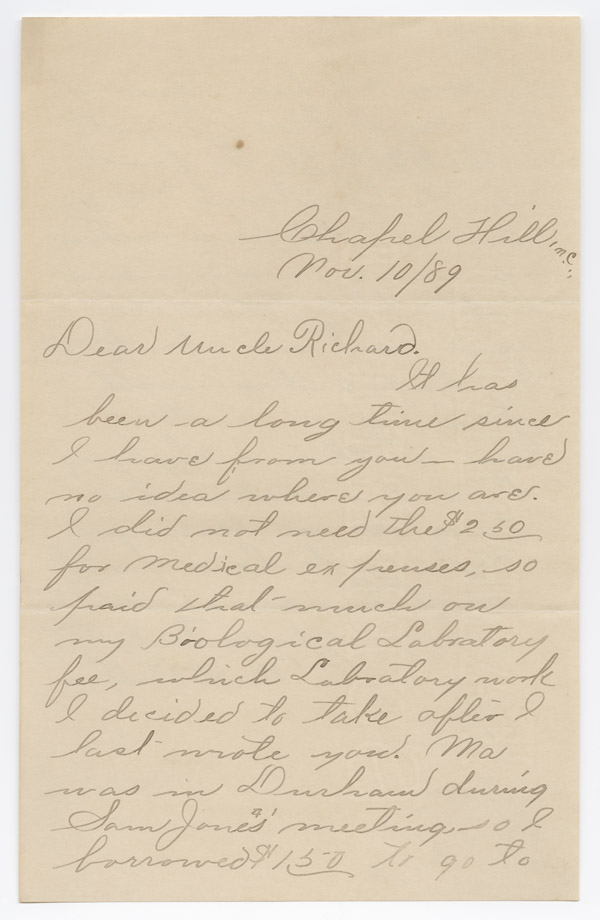 Chapel Hill, N.C.,
Nov. 10/89
Dear Uncle Richard.
It has
been a long time since
I have from you — have
no idea where you are.
I did not need the $2 50
for medical expenses, so
paid that much on
my Biological Labratory
fee, which Labratory work
I decided to take after I
last wrote you. Ma
was in Durham during
Sam Jones' meeting, so I
borrowed $1 50 to go to